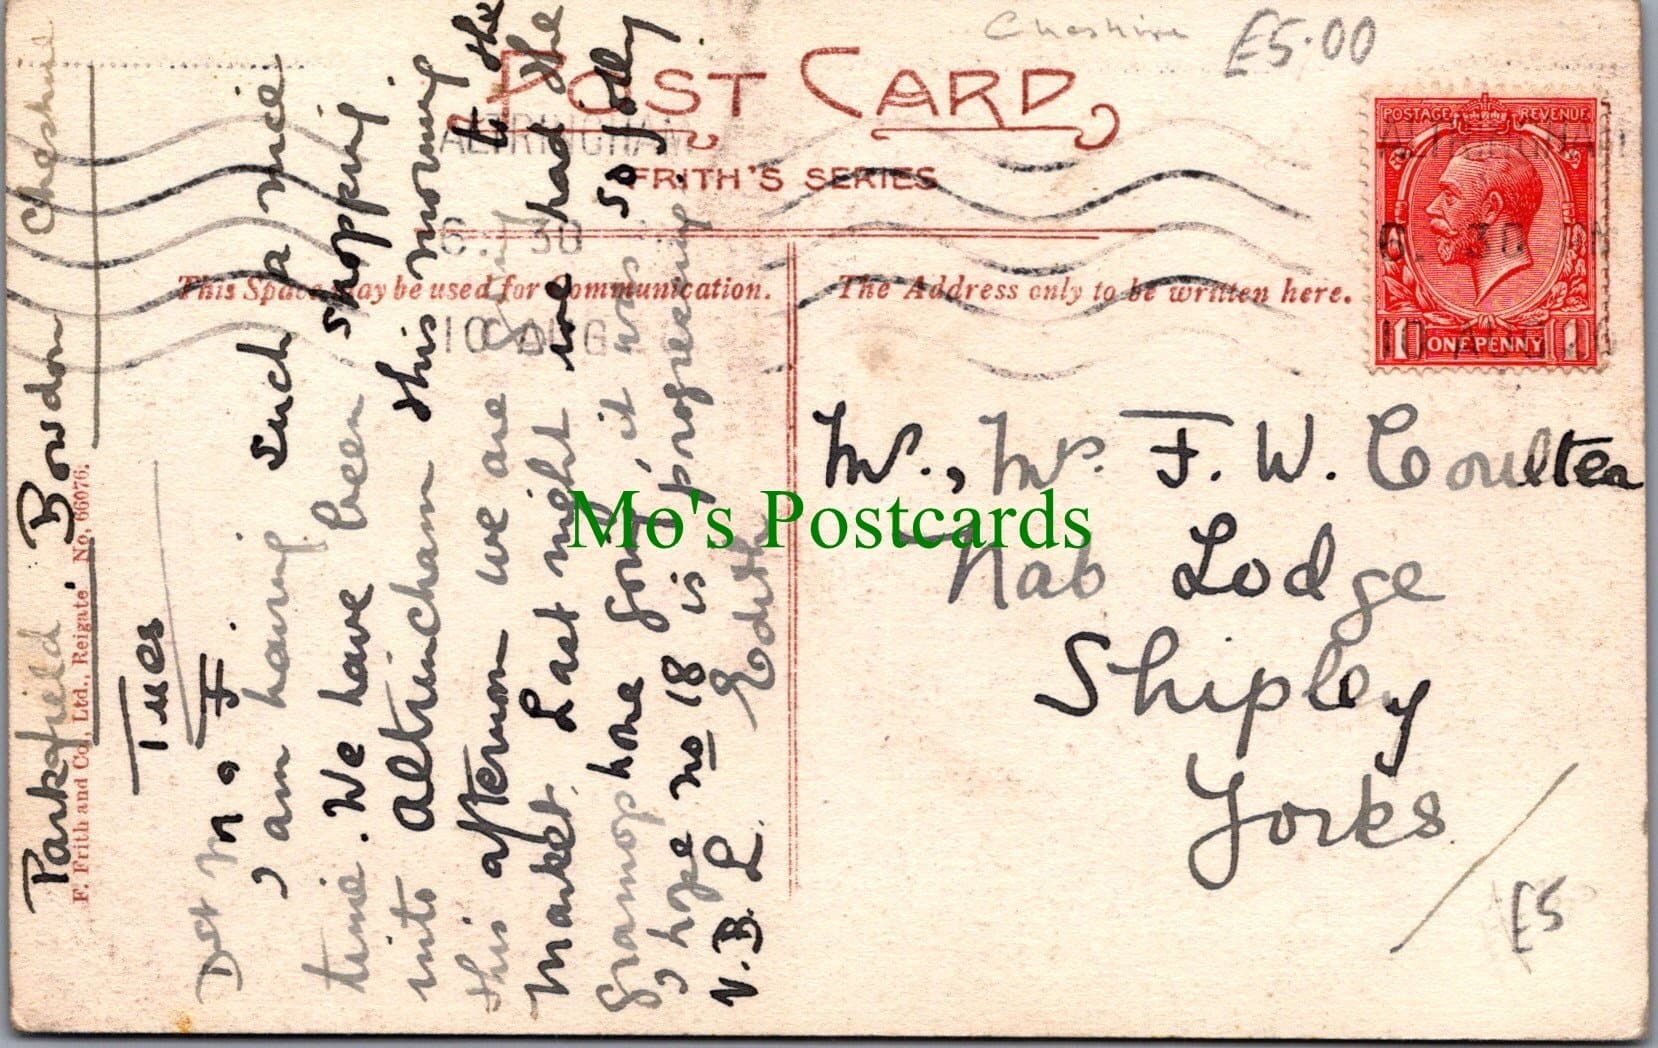 Cheshire £5.00
POST CARD
FRITH'S SERIES
This Space may be used for Communication.
The Address only to be written here.
POSTAGE REVENUE
1 ONE PENNY 1
ALTRINCHAM
6. 30
10 AUG
ALTRINCHAM
6. 30
10 AUG
Parkfield Bowdon Cheshire
F. Frith and Co., Ltd., Reigate. No. 66076.
Tues
Dst M & F.
I am having such a nice
time. We have been shopping
into altrincham this morning
this afternoon we are going to the
market. Last night we had the
gramophone going, it was so jolly
I hope no 18 is progressing.
V. B. L. Edith
Mr., Mrs. F. W. Coulter
Nab Lodge
Shipley
Yorks
£5
Mo's Postcards